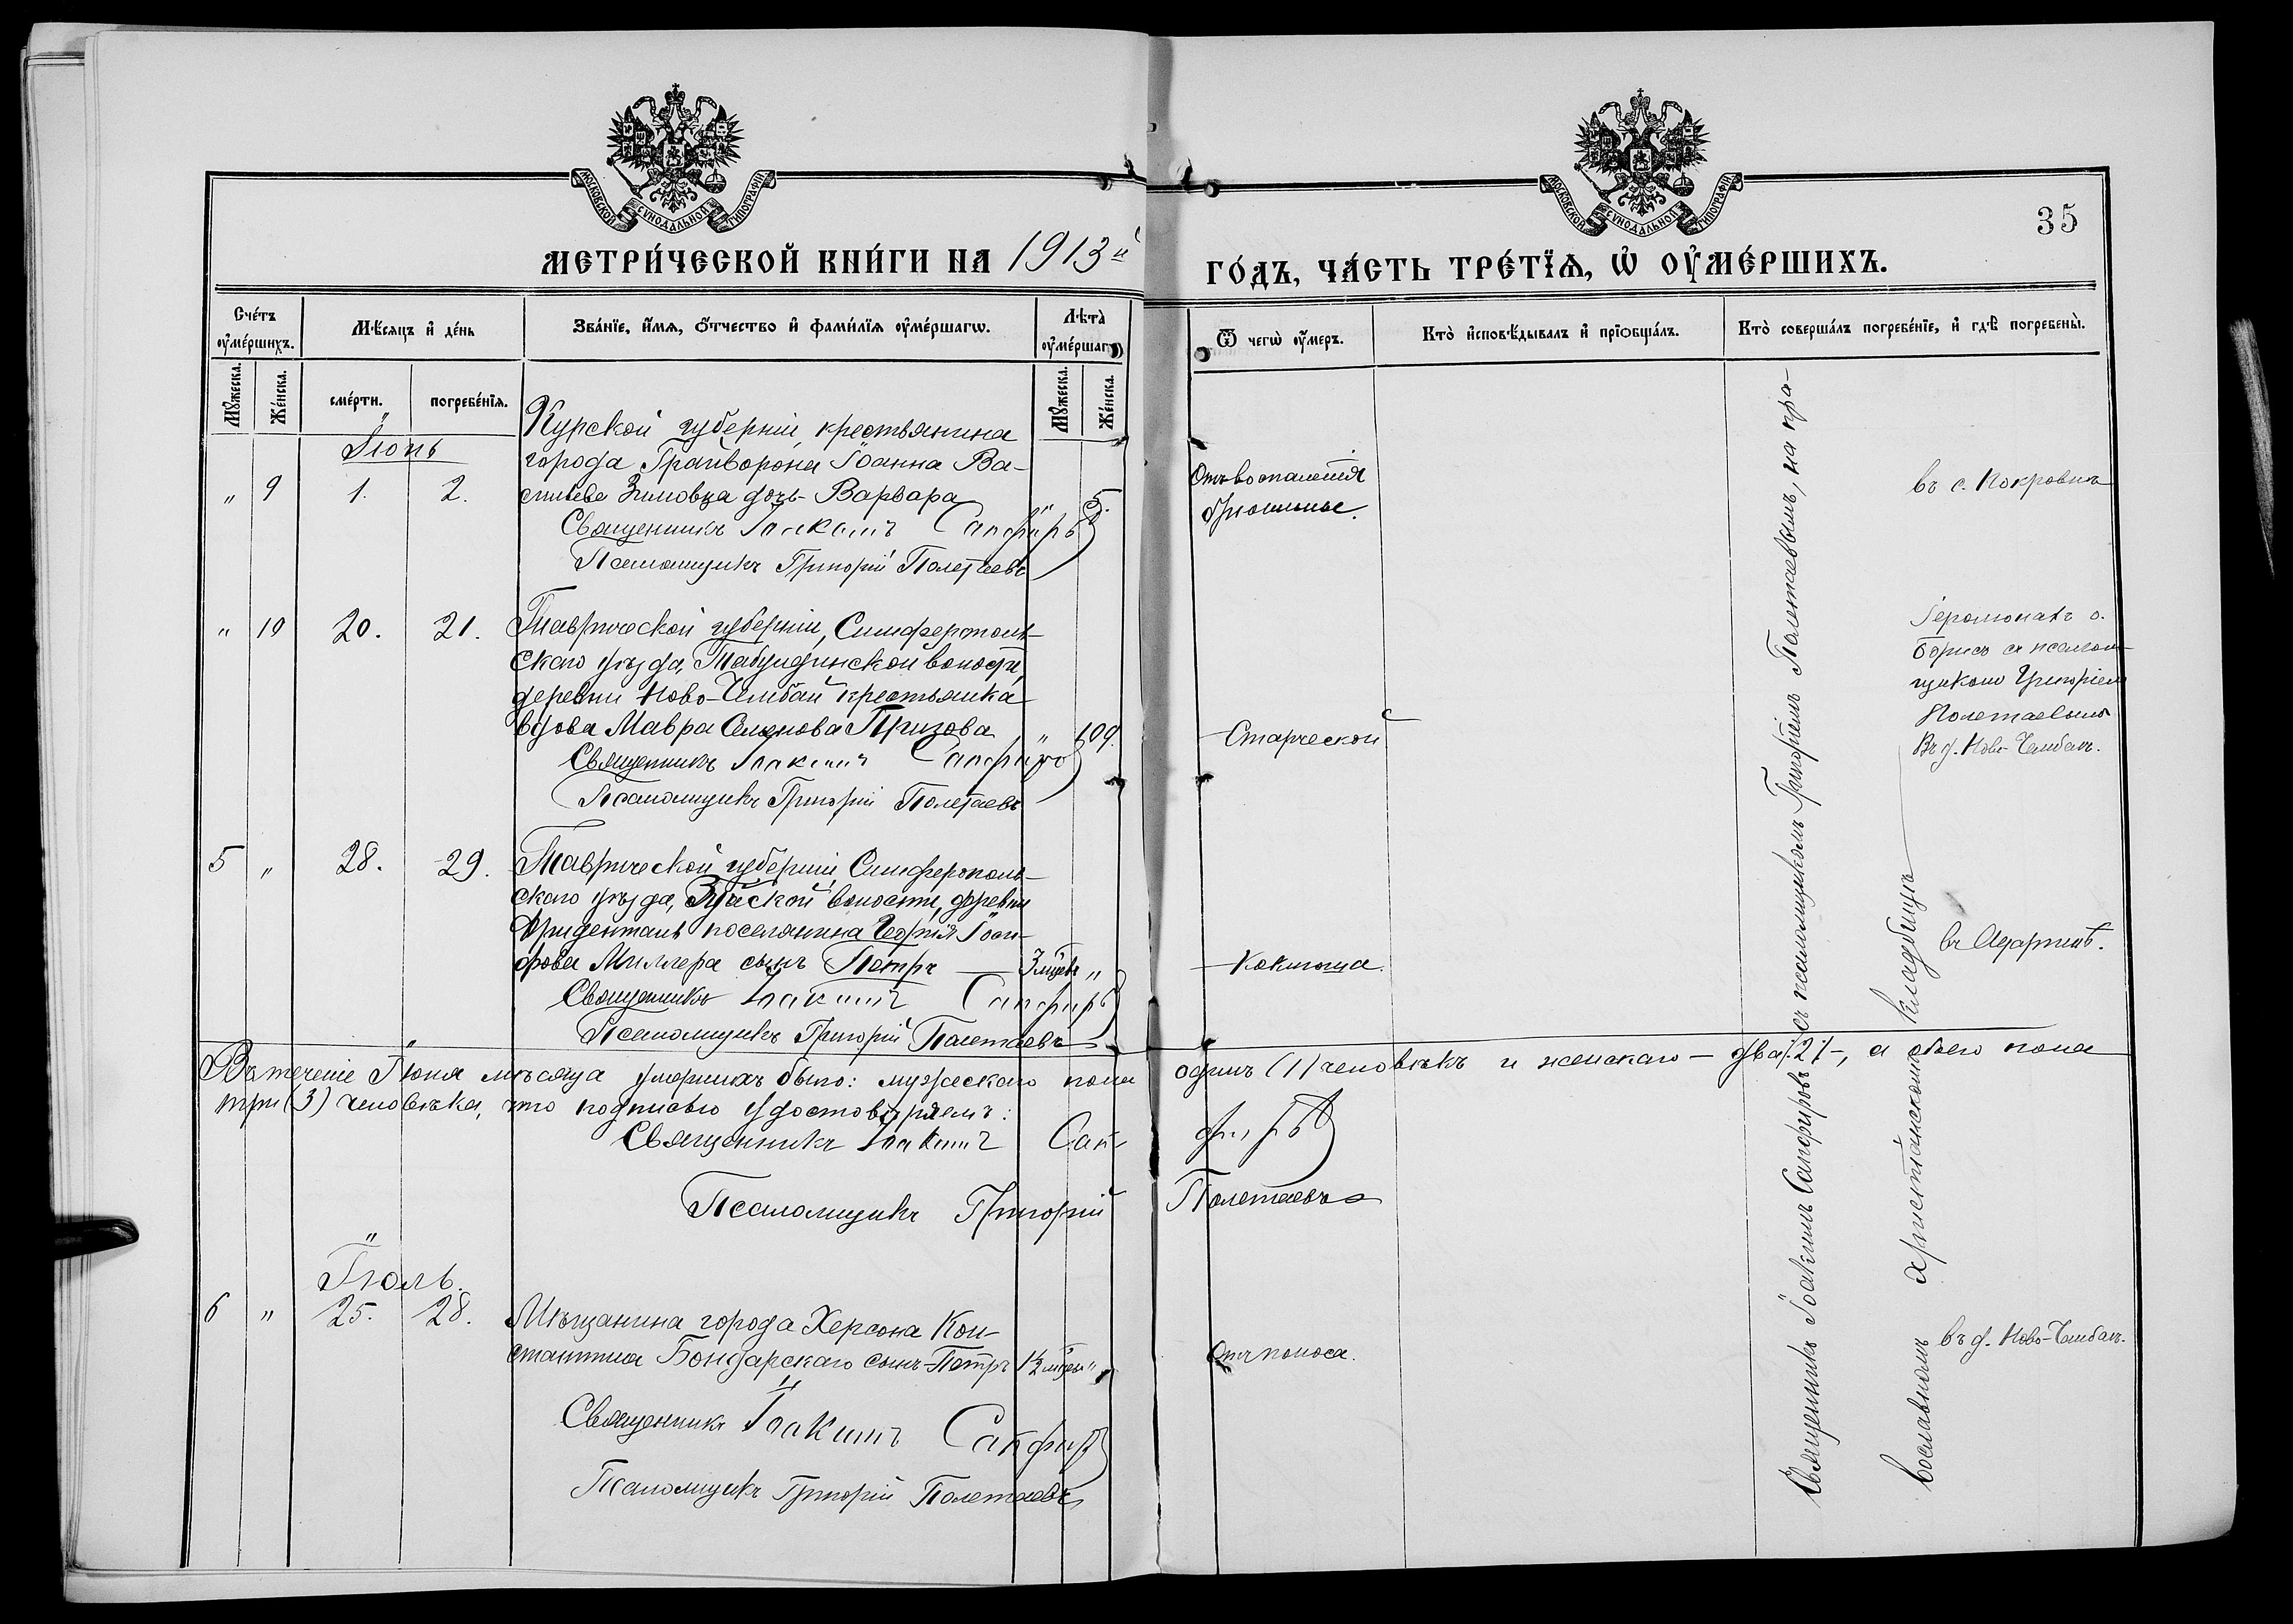 МОСКОВСКОЙ СѴНОДАЛЬНОЙ ТИПОГРАФІИ
МОСКОВСКОЙ СѴНОДАЛЬНОЙ ТИПОГРАФІИ
35
МЕТРИ́ЧЕСКОЙ КНИ́ГИ НА 1913й
ГО́ДЪ, ЧА́СТЬ ТРЕ́ТЇѦ, Ѡ ОУ҆МЕ́РШИХЪ.
Сче́тъ оу҆ме́ршихъ.
Мѣ́сяцъ и҆ де́нь
Зва́нїе, и҆́мѧ, ѻ҆́тчество и҆ фами́лїѧ оу҆ме́ршагѡ.
Лѣта̀ оу҆ме́ршагѡ
Ѿ чегѡ̀ оу҆́меръ.
Кто̀ и҆сповѣ́дывалъ и҆ прїѡбща́лъ.
Кто̀ соверша́лъ погребе́нїе, и҆ гдѣ̀ погребены̀.
Мꙋ́жеска. Же́нска.
сме́рти. погребе́нїѧ.
Мꙋ́жеска. Же́нска.
Іюнь
Курской губерніи, крестьянина
города Грайворона Іоанна Ва-
" 9 1. 2. сильева Зимовца дочь Варвара " 5.
Священникъ Іоакимъ Сапфировъ
Псаломщикъ Григорій Полетаевъ
Отъ воспаленія
брюшины.
въ с. Покровкѣ
" 10 20. 21. Таврической губерніи, Симферополь-
скаго уѣзда, Табулдинской волости,
деревни Ново-Чембай крестьянка
вдова Мавра Семенова Призова " 109.
Священникъ Іоакимъ Сапфировъ
Псаломщикъ Григорій Полетаевъ
Старческой
Іеромонахъ о.
Борисъ съ псалом-
щикомъ Григоріемъ
Полетаевымъ
Въ д. Ново-Чембаѣ.
5 " 28. 29. Таврической губерніи, Симферополь-
скаго уѣзда, Зуйской волости, деревни
Фриденталь поселянина Георгія
Миллера сынъ Петръ 3 мѣсяц. "
Священникъ Іоакимъ Сапфировъ
Псаломщикъ Григорій Полетаевъ
Коклюша.
въ Аргинѣ.
Въ теченіе Іюня мѣсяца умершихъ было: мужескаго пола одинъ (1) человѣкъ и женскаго – два /2/ –, а обоего пола
три (3) человѣка, что подписью удостовѣряемъ:
Священникъ Іоакимъ Сапфировъ
Псаломщикъ Григорій Полетаевъ
Іюль.
6 " 25. 28. Мѣщанина города Херсона Кон-
стантина Бондарскаго сынъ Петръ "
Священникъ Іоакимъ Сапфировъ
Псаломщикъ Григорій Полетаевъ
Отъ поноса.
въ д. Ново-Чембаѣ.
Священникъ Іоакимъ Сапфировъ съ псаломщикомъ Григоріемъ Полетаевымъ, на пра-
вославномъ христіанскомъ кладбищѣ